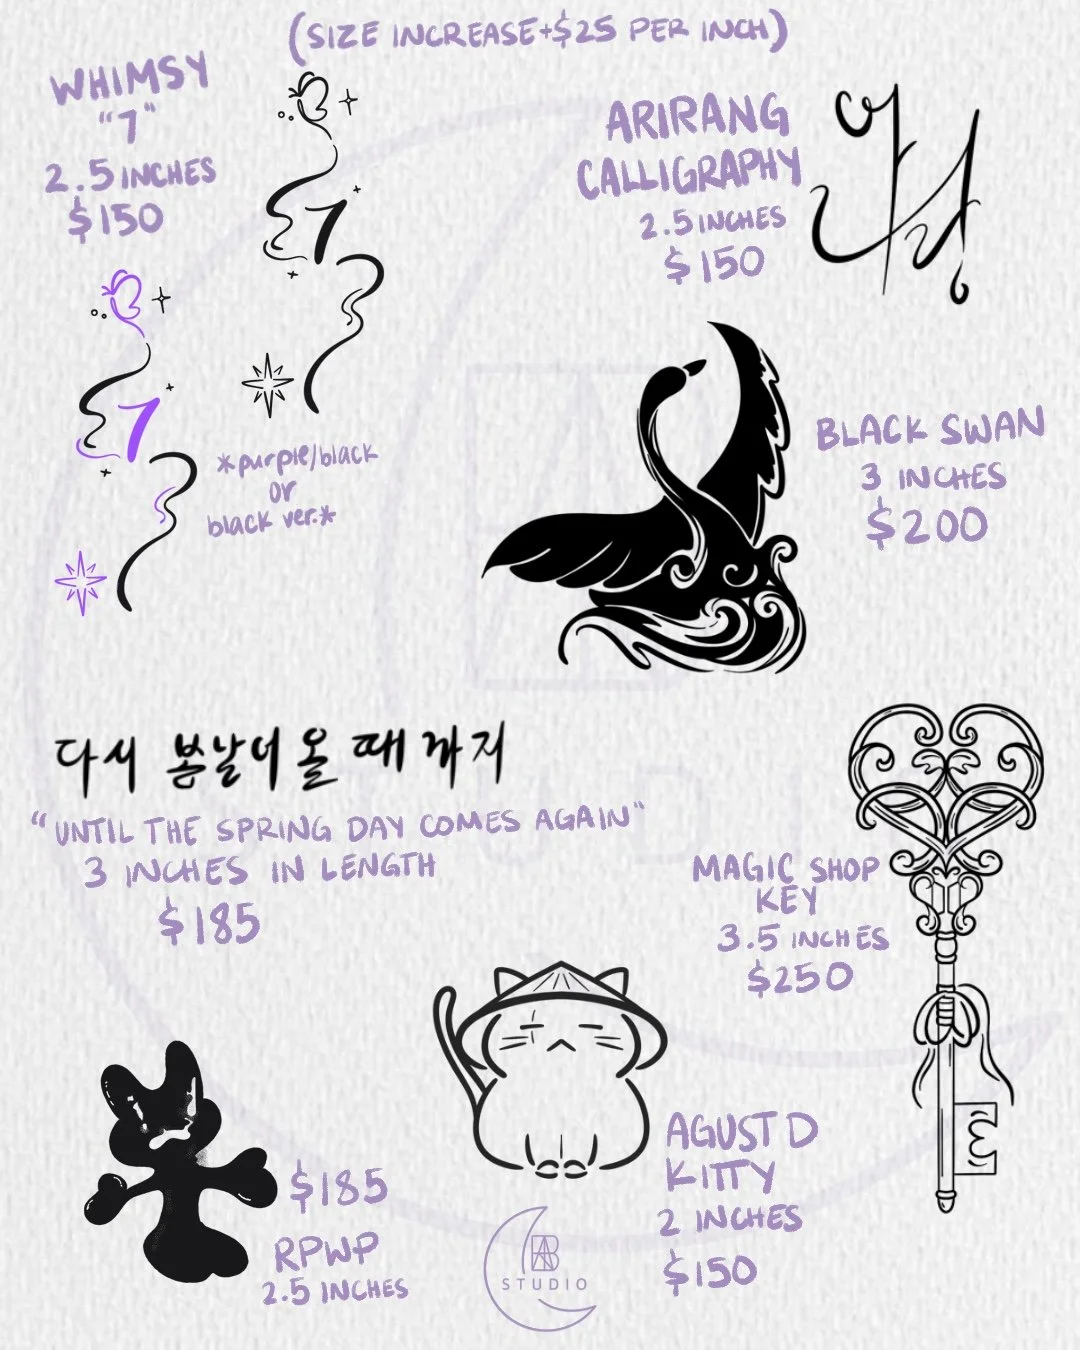 (SIZE INCREASE +$25 PER INCH)
WHIMSY
"7"
2.5 INCHES
$150
7
7
*purple/black
or
black ver.*
ARIRANG
CALLIGRAPHY
2.5 INCHES
$150
BLACK SWAN
3 INCHES
$200
다시 봄날이 올 때까지
"UNTIL THE SPRING DAY COMES AGAIN"
3 INCHES IN LENGTH
$185
MAGIC SHOP
KEY
3.5 INCHES
$250
$185
RPWP
2.5 INCHES
AGUST D
KITTY
2 INCHES
$150
STUDIO